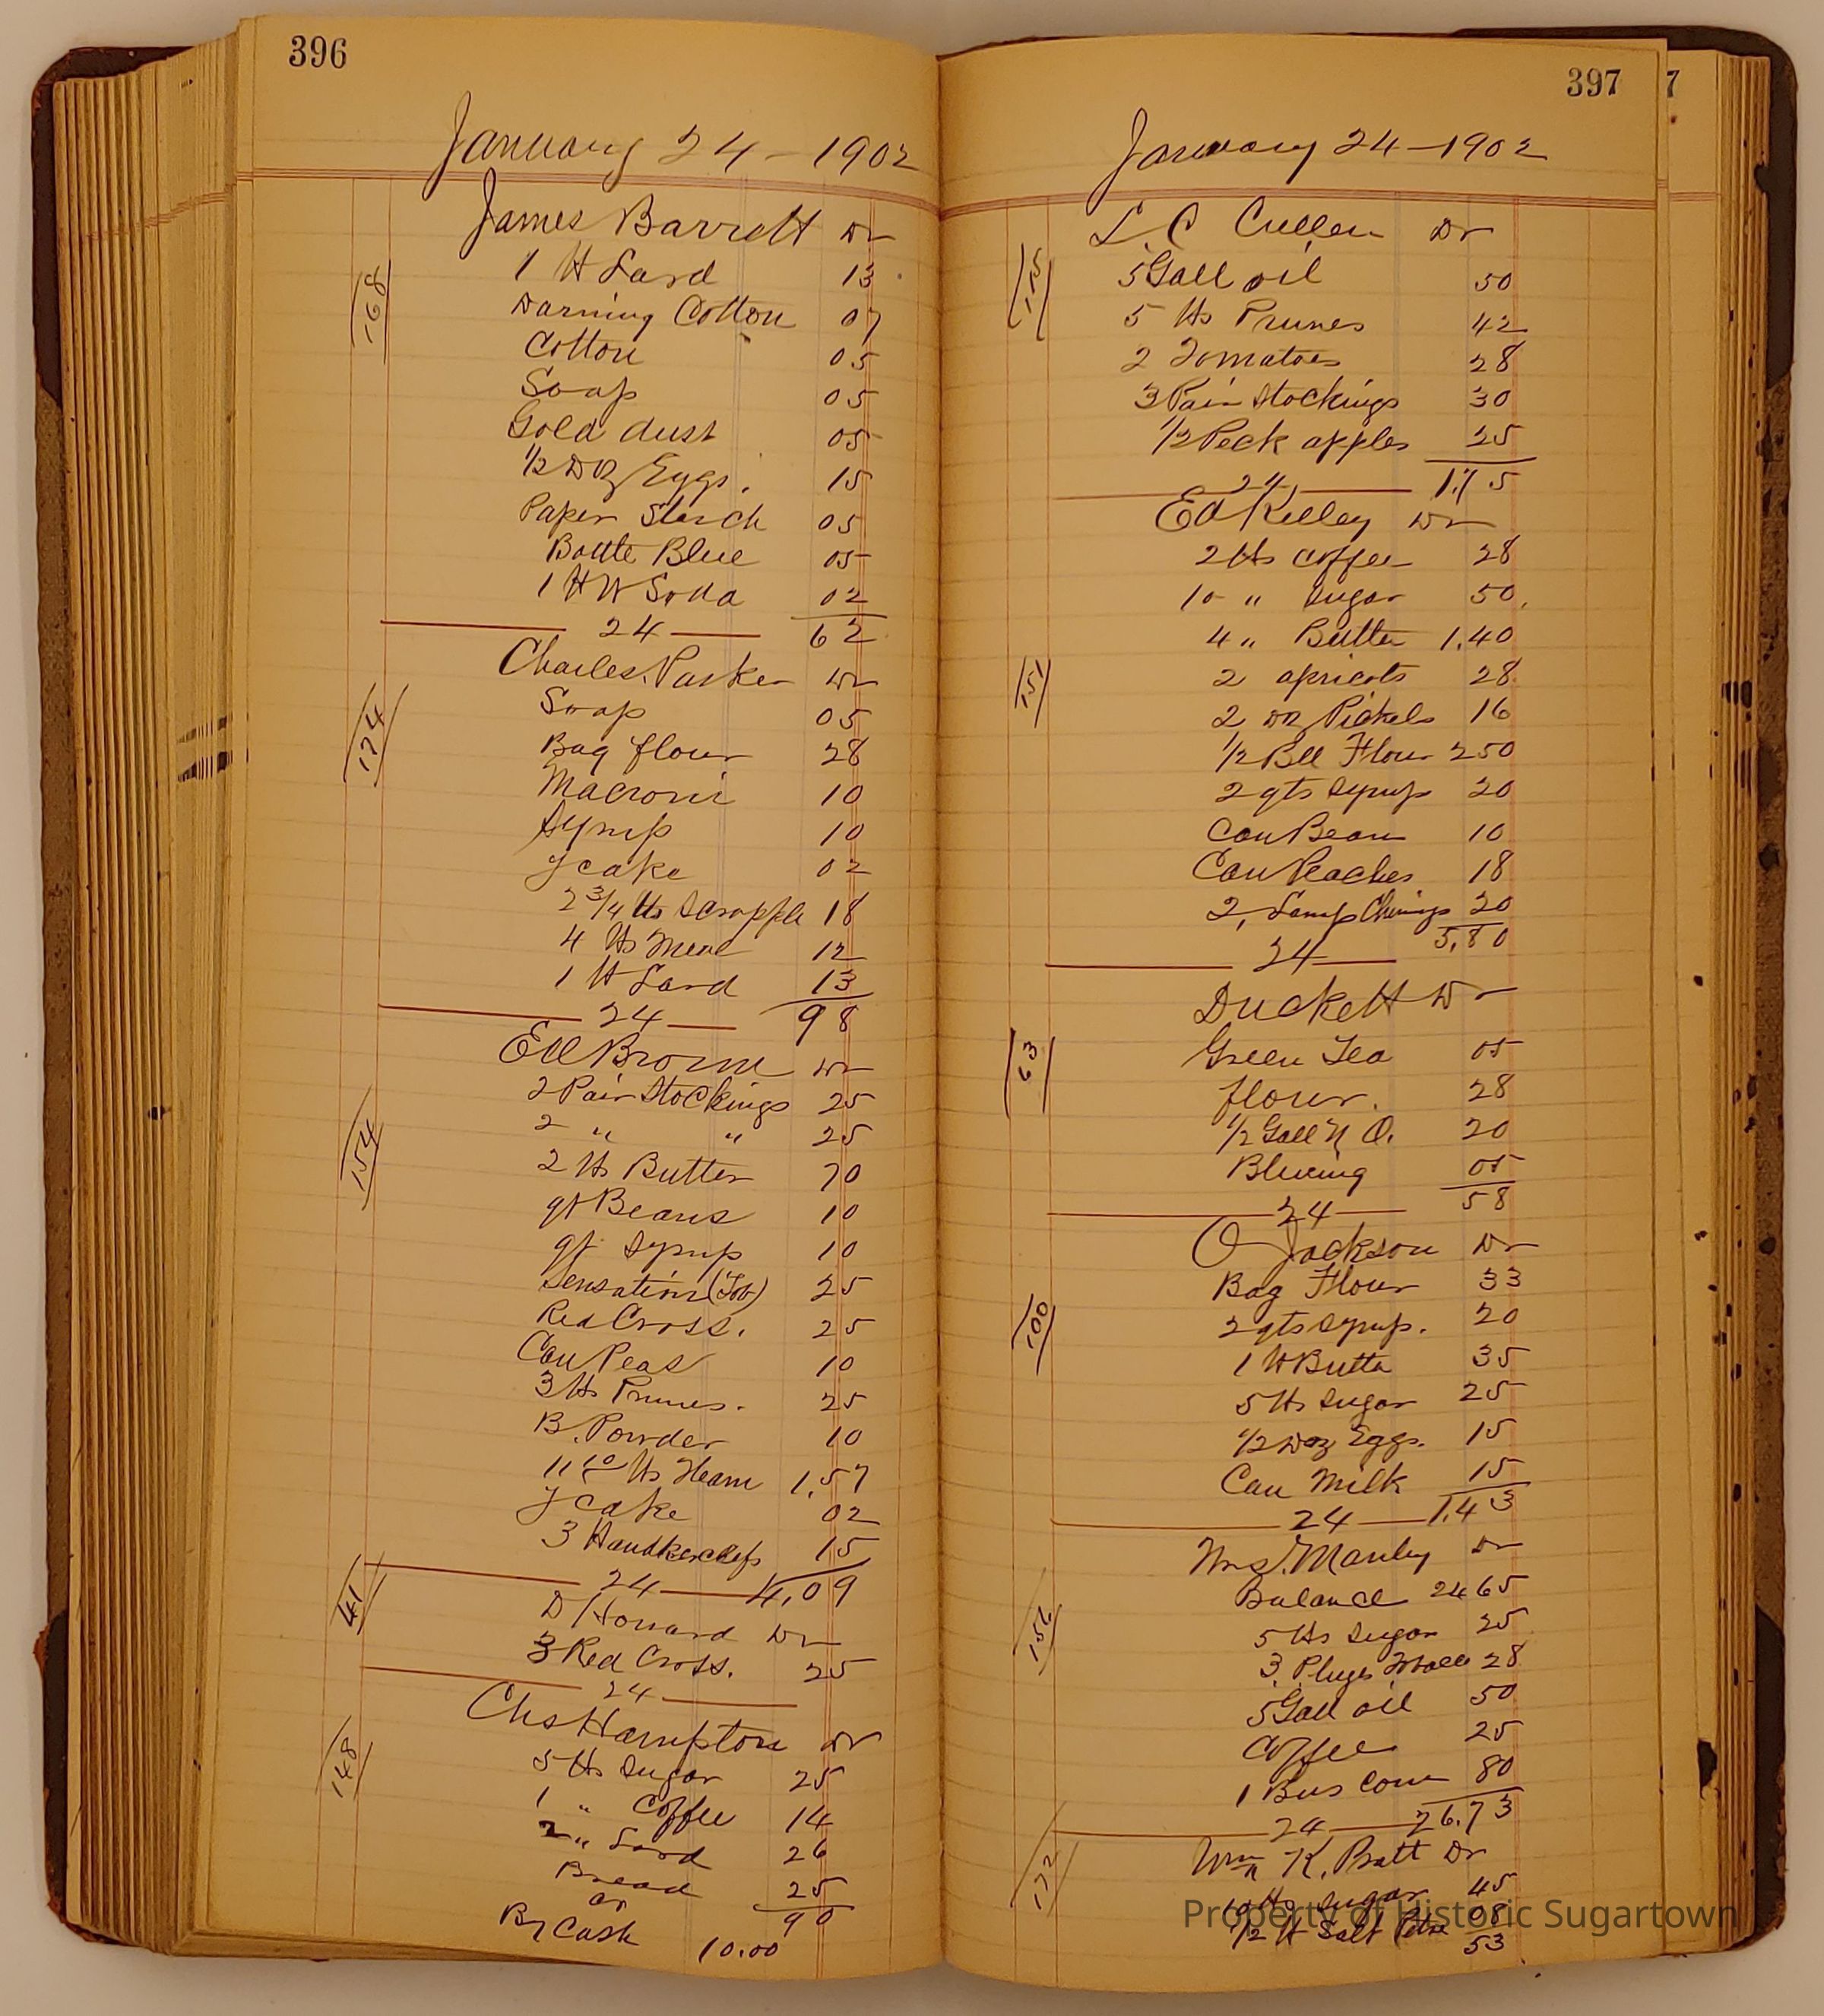 396
January 24 - 1902
James Barrett Dr
168
1 lb Lard 13
Darning Cotton 07
Cotton 05
Soap 05
Gold dust 05
1/2 Doz Eggs. 15
Paper Starch 05
Bottle Blue 05
1 lb W Soda 02
24 62
Charles Parker Dr
174
Soap 05
Bag flour 28
Macroni 10
Syrup 10
y cake 02
2 3/4 lbs Scrapple 18
4 lbs Meal 12
1 lb Lard 13
24 98
Ed Brown Dr
154
2 Pair Stockings 25
2 " " 25
2 lbs Butter 70
qt Beans 10
qt Syrup 10
Sensation (Tob) 25
Red Cross. 25
Can Peas 10
3 lbs Prunes. 25
B. Powder 10
11 10 lbs Ham 1.57
y cake 02
3 Handkerchefs 15
24 4,09
41
D Howard Dr
3 Red Cross. 25
24
Chs Hampton Dr
148
5 lbs Sugar 25
1 " Coffee 14
2 " Lard 26
Bread 25
90
Cr
By Cash 10.00
397
January 24 - 1902
L. C Cullen Dr
115
5 Gall oil 50
5 lbs Prunes 42
2 Tomatoes 28
3 Pair Stockings 30
1/2 Peck apples 25
24 1.75
Ed Kelley Dr
2 lbs coffee 28
10 " sugar 50
4 " Butter 1.40
151
2 apricots 28
2 Dz Pickels 16
1/2 Bll Flour 250
2 qts Syrup 20
Can Bean 10
Can Peaches 18
2, Lamp Chimys 20
5,80
24
Duckett Dr
63
Green Tea 05
flour. 28
1/2 Gall N O. 20
Blueing 05
24 58
O Jackson Dr
100
Bag Flour 33
2 qts Syrup. 20
1 lb Butta 35
5 lbs Sugar 25
1/2 Doz Eggs. 15
Can Milk 15
24 1.43
Mrs. Manley Dr
156
Balance 2465
5 lbs Sugar 25
3 Plugs 28
5 Gall oil 50
Coffee 25
1 Bus Corn 80
24 26.73
Wm K. Pratt Dr
172
10 lbs Sugar 45
1/2 lb Salt Petre 08
53
Property of Historic Sugartown